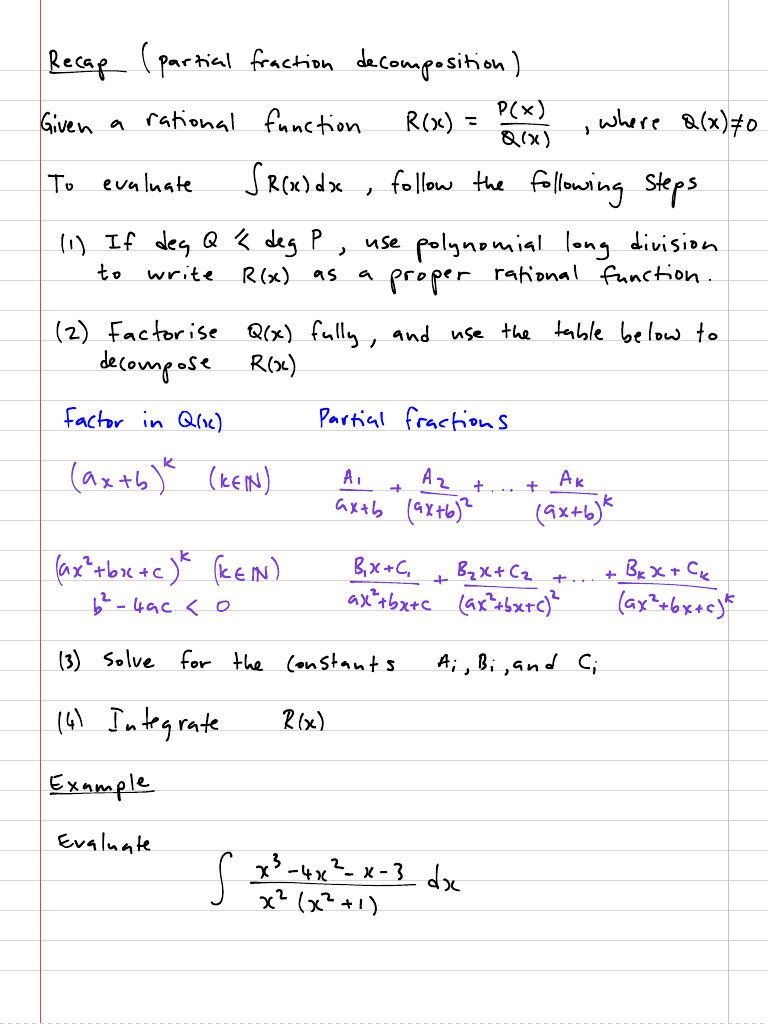 Recap (partial fraction decomposition)
Given a rational function R(x) = P(x)/Q(x) , where Q(x)≠0
To evaluate ∫R(x)dx , follow the following steps
(1) If deg Q ⩽ deg P , use polynomial long division
to write R(x) as a proper rational function.
(2) Factorise Q(x) fully, and use the table below to
decompose R(x)
Factor in Q(x) Partial fractions
(ax+b)^k (k∈ℕ) A₁/(ax+b) + A₂/(ax+b)² + ... + A_k/(ax+b)^k
(ax²+bx+c)^k (k∈ℕ) (B₁x+C₁)/(ax²+bx+c) + (B₂x+C₂)/(ax²+bx+c)² + ... + (B_k x + C_k)/(ax²+bx+c)^k
b² - 4ac < 0
(3) Solve for the constants A_i, B_i, and C_i
(4) Integrate R(x)
Example
Evaluate
∫ (x³ - 4x² - x - 3)/(x²(x²+1)) dx